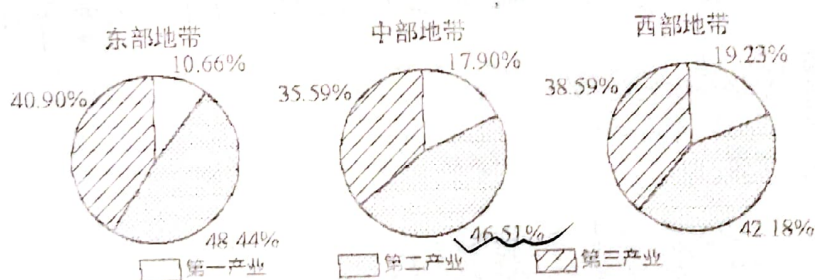 东部地带
10.66%
40.90%
48.44%
中部地带
17.90%
35.59%
46.51%
西部地带
19.23%
38.59%
42.18%
第一产业
第二产业
第三产业